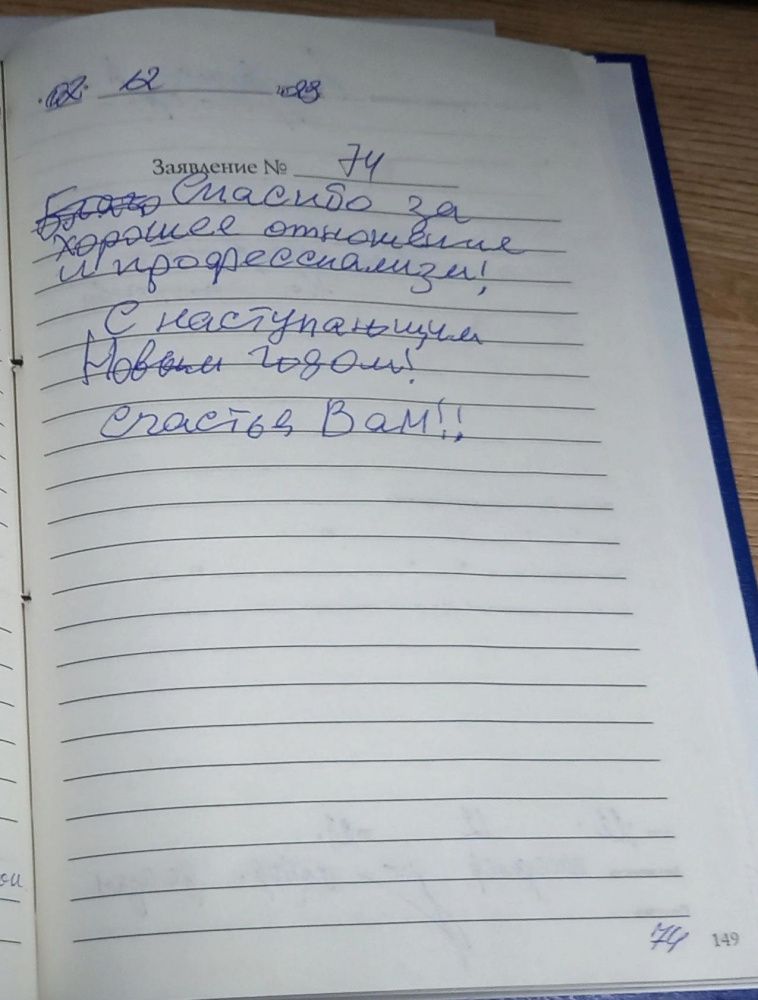 12
Заявление № 74
Спасибо за
хорошее отношение
и профессиализм!
С наступающим
Новым Годом!
Счастья Вам!!!
ои
74 149